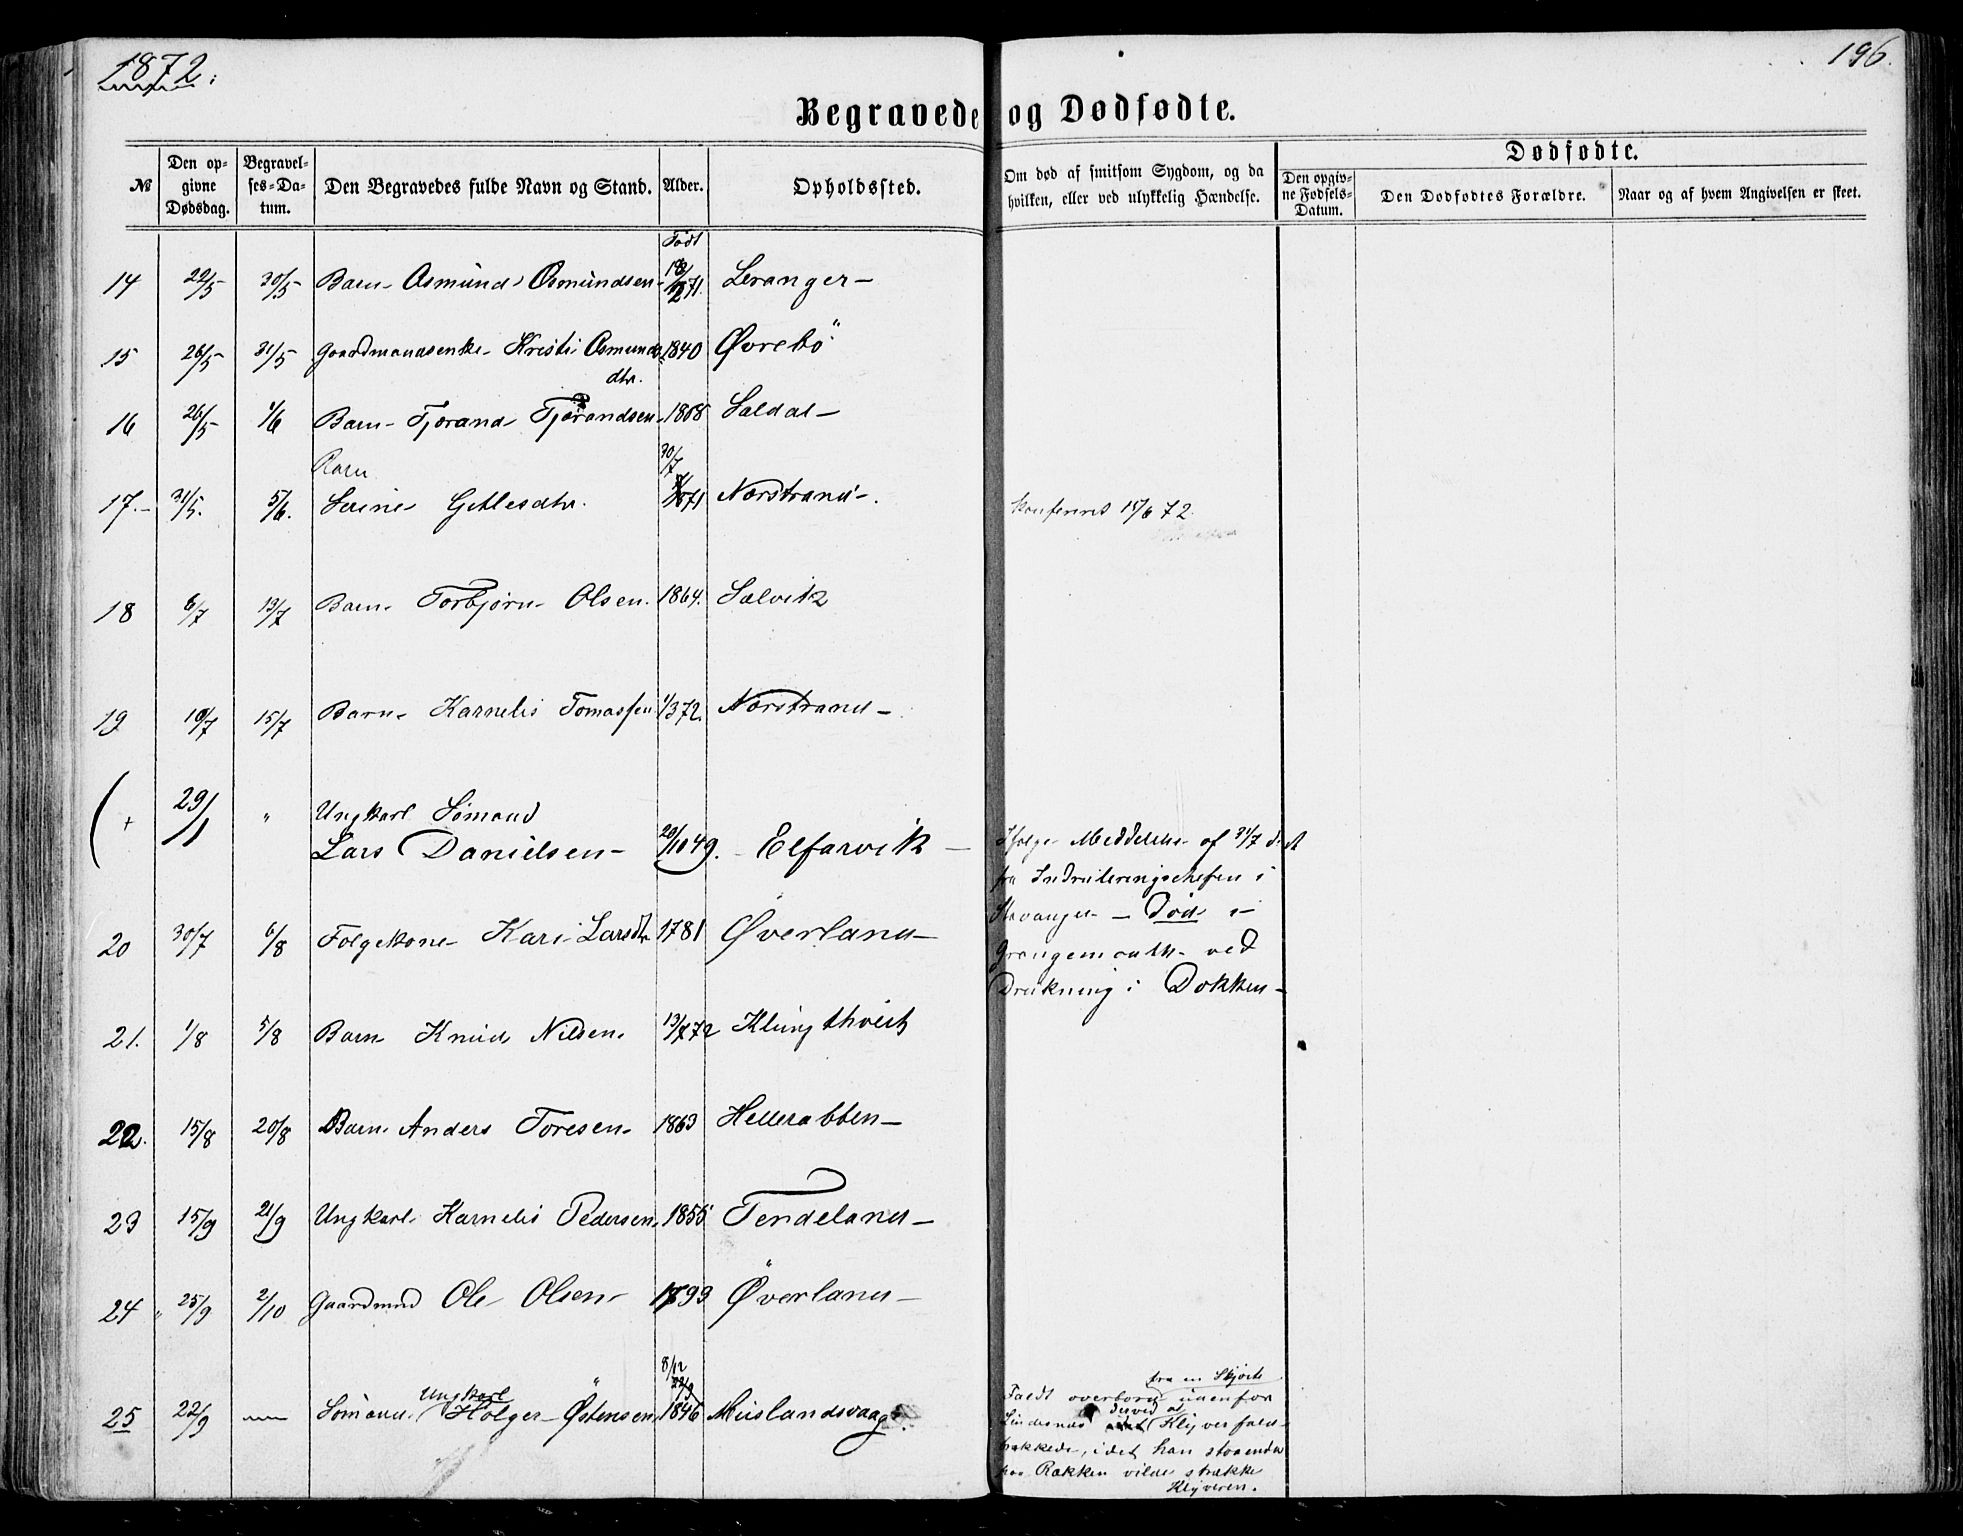 1872.
196.
Begravede og Dødfødte.
№
Den op-
givne
Dødsdag.
Begravel-
ses-Da-
tum.
Den Begravedes fulde Navn og Stand.
Alder.
Opholdssted.
Om død af smitsom Sygdom, og da
hvilken, eller ved ulykkelig Hændelse.
Dødfødte.
Den opgiv-
ne Fødsels-
Datum.
Den Dødfødtes Forældre.
Naar og af hvem Angivelsen er skeet.
Født
14 22/5 30/5 Barn Osmund Osmundsen 71. Leranger
15 26/5 31/5 Gaardmandsenke Kristi Osmunds 1840 Øvrebö
dtr.
16 26/5 1/6 Barn Tjorand Tjorandsen 1868 Saldal
Barn 30/7
17. 31/5. 5/6. Serine Getlesdtr. 1871 Norstrand. Konfereret 15/6 72.
18 6/7 13/7 Barn Torbjørn Olsen. 1864. Salvik
19 10/7 15/7 Barn Karnelis Tomassen 1/3 72. Norstrand
+ 29/1 " Ungkarl Sømand
Lars Danielsen 20/10 49. Elfarvik Ifølge Meddelelse af 31/7 d.A
fra Indrulleringschefen i
Stavanger Død i
20 30/7 6/8 Følgekone Kari Larsdtr 1781 Øverland
Grangemouth ved
Drukning i Dokken
21. 1/8 5/8 Barn Knud Nilsen. 13/7 72 Klungtveit
22. 15/8 20/8 Barn Anders Toresen 1863 Hellerabben
23 15/9 21/9 Ungkarl Karnelis Pedersen 1855 Tendeland
24 25/9 2/10 Gaardmd Ole Olsen 1899 Øverland
8/12
25 22/9 Sømand Ungkarl Holger Østensen 1846 Muslandsvaag.
fra en Skjørte
Faldt overbord udenfor
Lindesnæs derved at Klyverfald
brækkede, idet han staaende
paa Rakken vilde strække
Klyveren.